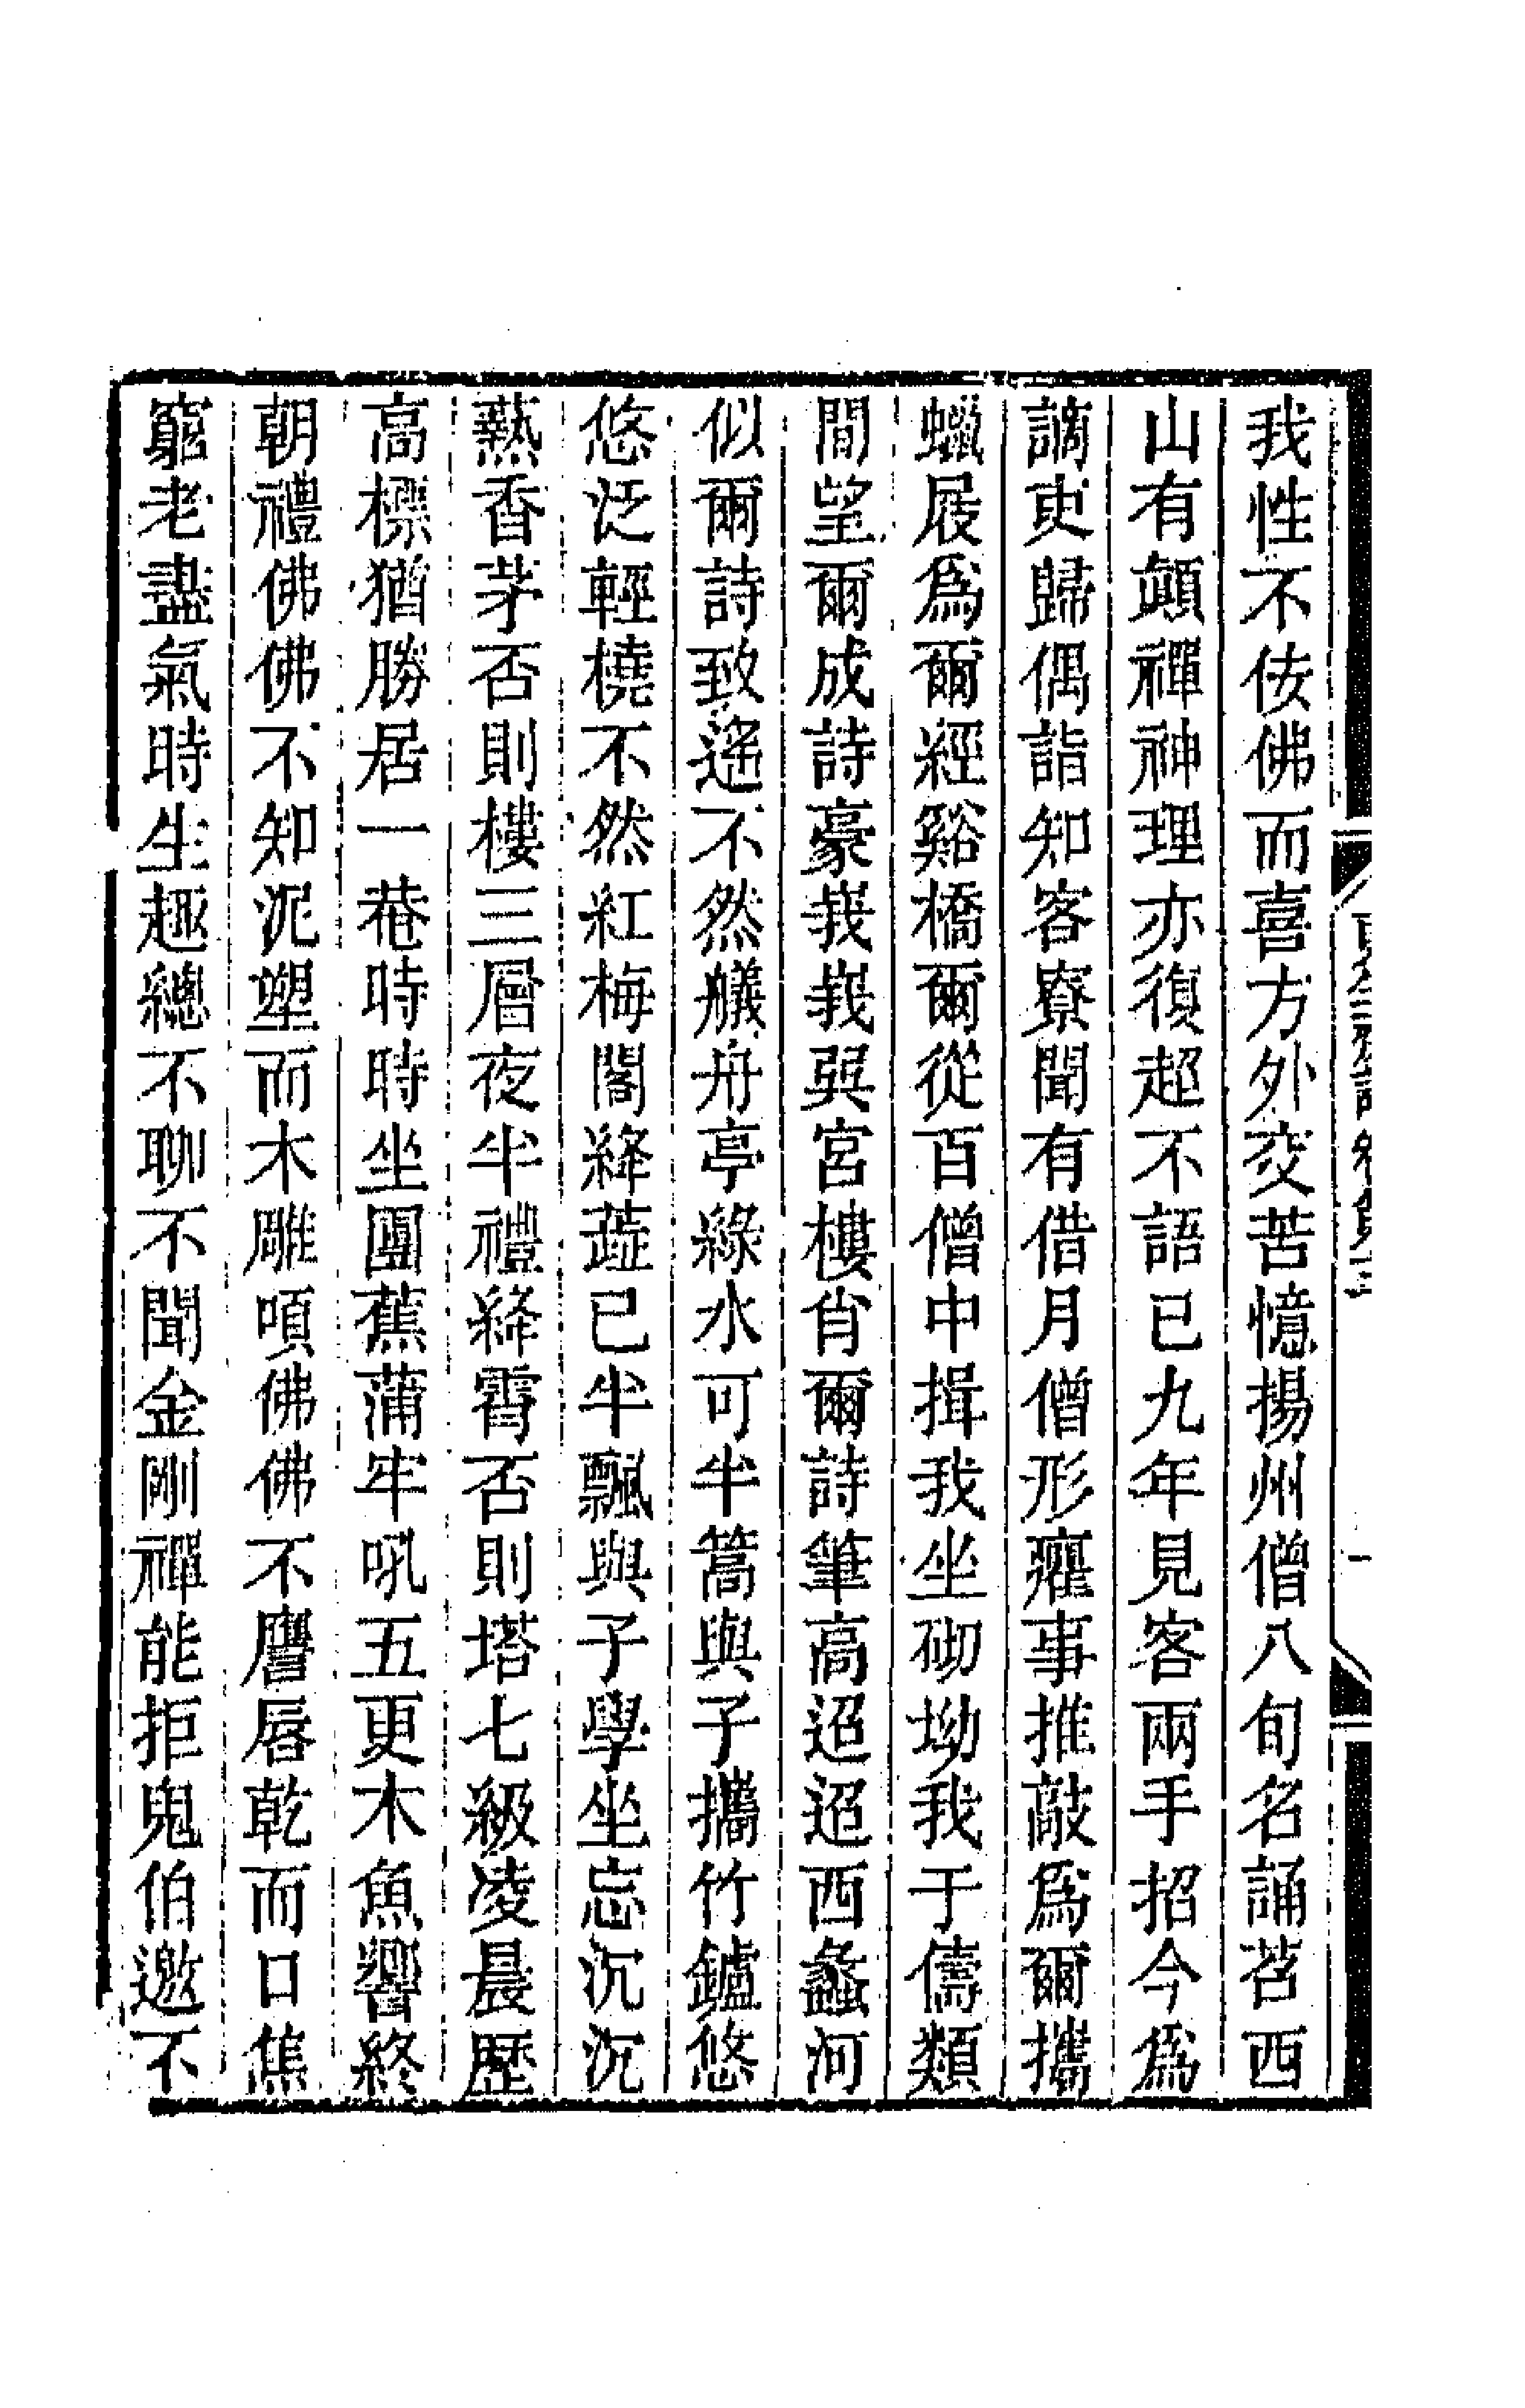 我性不佞佛而喜方外交苦憶揚州僧八旬名誦苕西
山有顛禪神理亦復超不語已九年見客兩手招今為
謫吏歸偶詣知客寮聞有借月僧形癯事推敲為爾攜
蠟屐為爾經谿橋爾從百僧中揖我坐砌坳我于儔類
間望爾成詩豪峩峩吳宮樓肖爾詩筆高迢迢西蠡河
似爾詩致遙不然艤舟亭綠水可半篙與子攜竹鑪悠
悠泛輕橈不然紅梅閣絳蕋已半飄與子學坐忘沉沉
爇香茅否則樓三層夜半禮絳霄否則塔七級凌晨歷
高標猶勝居一菴時時坐團蕉蒲牢吼五更木魚響終
朝禮佛佛不知泥塑而木雕唄佛佛不譍唇乾而口焦
窮老盡氣時生趣總不聊不聞金剛禪能拒鬼伯邀不